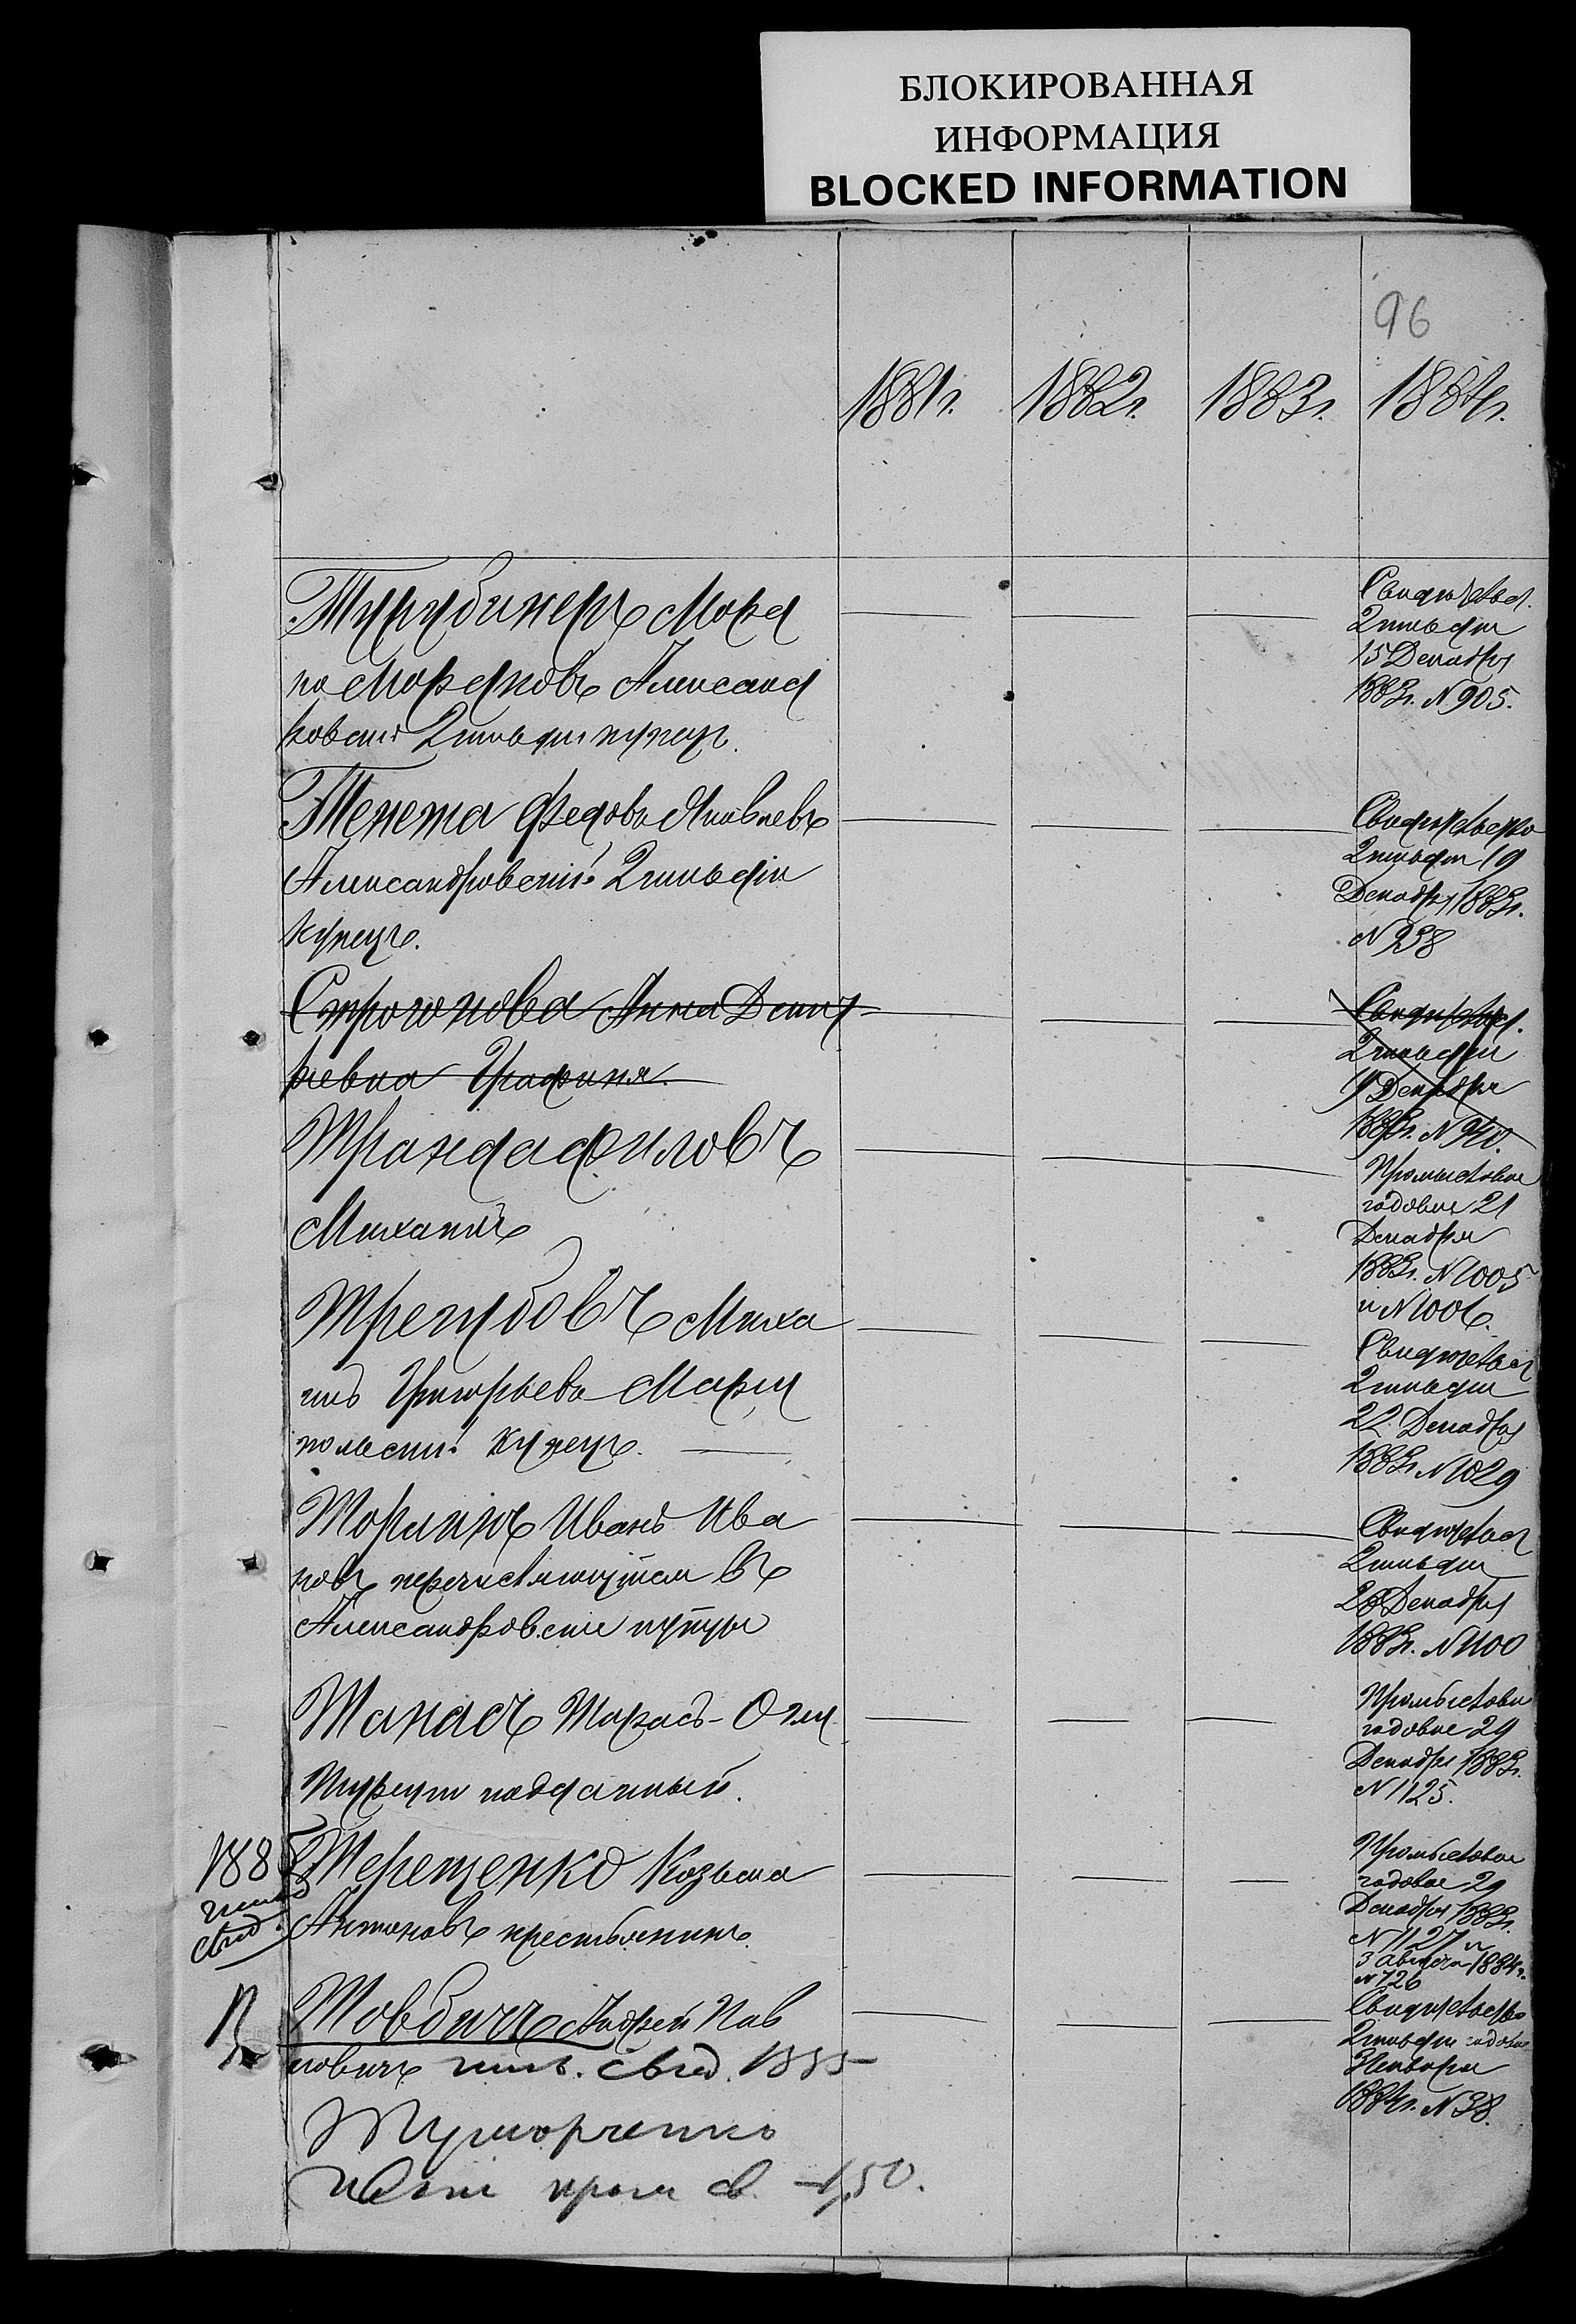 БЛОКИРОВАННАЯ
ИНФОРМАЦИЯ
BLOCKED INFORMATION
96
1881г. 1882г. 1883г. 1884г.
Турубинеръ Морд
ко Мордковъ Александ
ровскій 2 гильдіи купецъ.
Свидѣтельст.
2 гильдіи
15 Декабря
1883г. N 905.
Тенета Федоръ Яковлевъ
Александровскій 2 гильдіи
купецъ.
Свидѣтельство
2 гильдіи 19
Декабря 1883г.
N 938
Строгонова Анна Дмит
ревна Графиня.
Свидѣтельст.
2 гильдіи
19 Декабря
1883г. N 940.
Трандафиловъ
Михаилъ
Промысловое
годовое 21
Декабря
1883г. N 1005
и N 1006.
Трегубовъ Миха
илъ Григорьевъ Маріу
польскій купецъ.
Свидѣтельст
2 гильдіи
22 Декабря
1883г. N 1029
Торлинъ Иванъ Ива
новъ перечисляющійся въ
Александровскіе купцы
Свидѣтельст
2 гильдіи
28 Декабря
1883г. N 1100
Танасъ Тарасъ-Оглу
Турецкій подданный.
Промысловое
годовое 29
Декабря 1883г.
N 1125.
1885
гильд
свид.
Терещенко Козьма
Антоновъ крестьянинъ.
Промысловое
годовое 29
Декабря 1883г.
N 1127 и
3 августа 1884г.
N 726
Товбичъ Андрей Пав
ловичъ гил. свид. 1885
Свидѣтельство
2 гильдіи годовое
Января
1884г. N 38.
пром св. - 1,50.